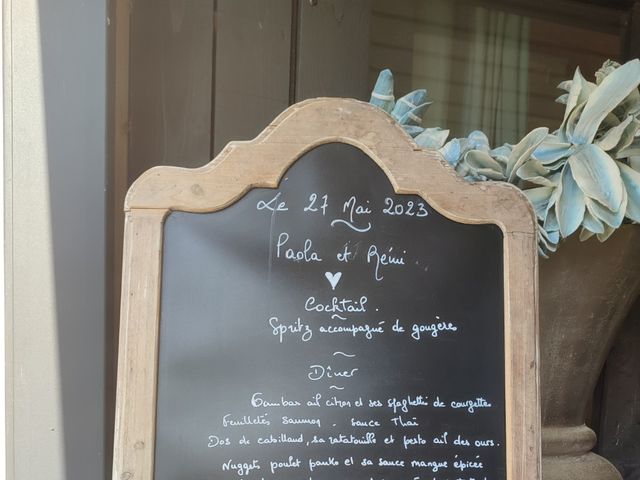 Le 27 Mai 2023
Paola et Rémi
Cocktail.
Spritz accompagné de gougères
Dîner
Gambas ail citron et ses spaghetti de courgettes
Feuilletés saumon. sauce Thaï
Dos de cabillaud, sa ratatouille et pesto ail des ours.
Nuggets poulet panko et sa sauce mangue épicée